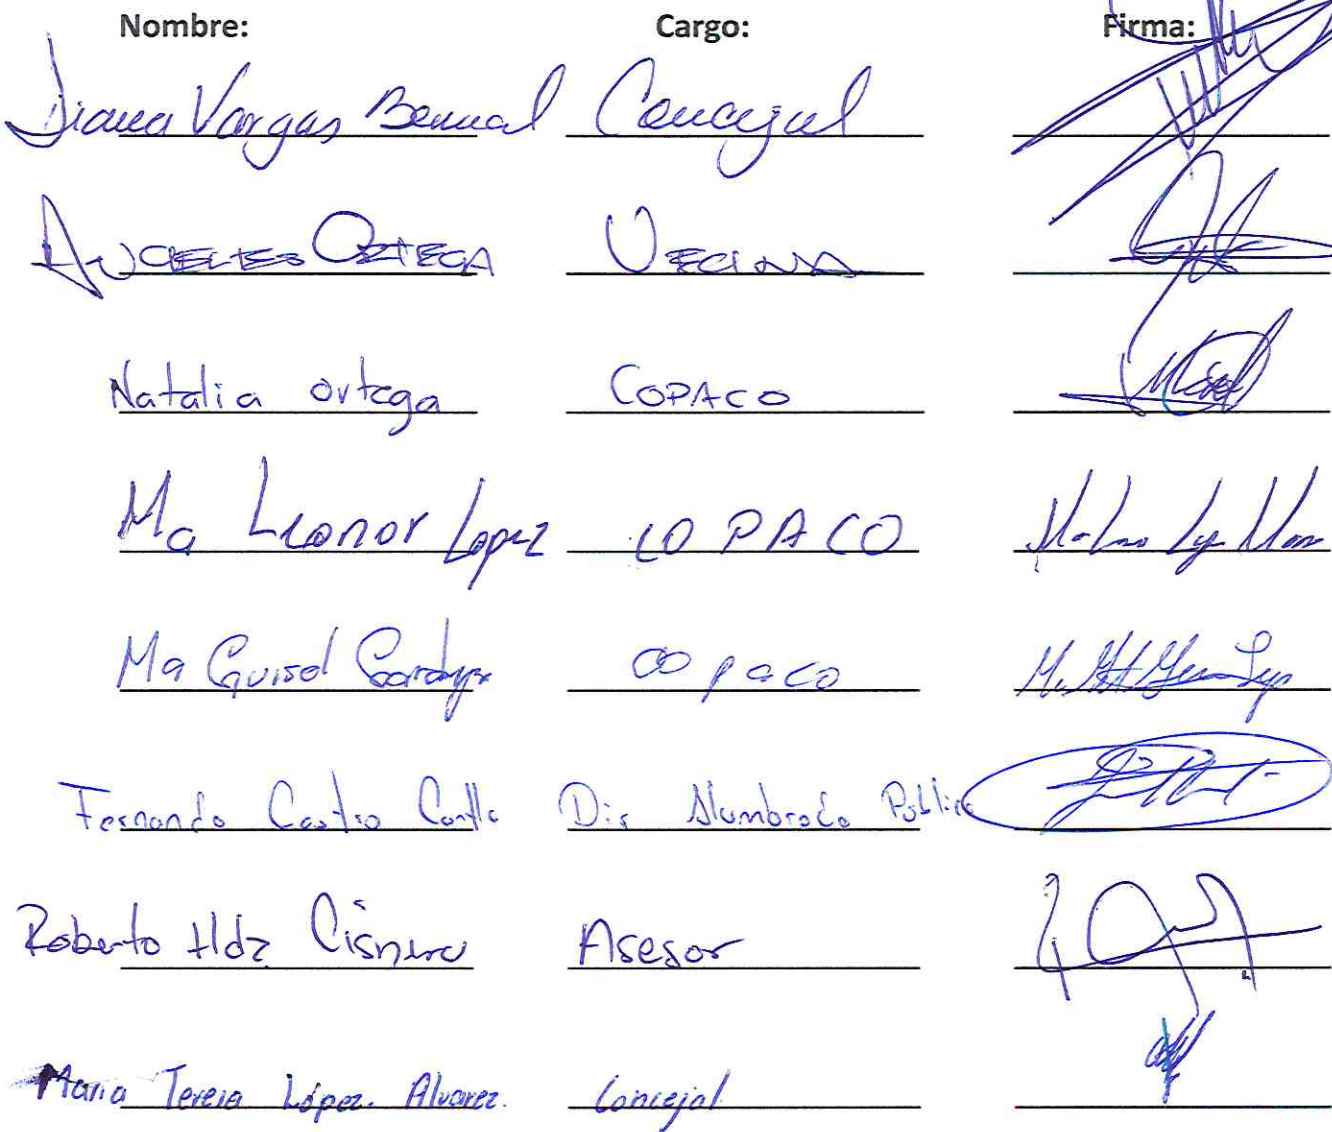 Nombre: Cargo: Firma:
Diana Vargas Bernal Concejal
Angeles Ortega Vecina
Natalia ortega COPACO
Ma Leonor Lopez COPACO
Ma copaco
Fernando Castro Dir Alumbrado Público
Roberto Hdz Cisnero Asesor
Maria Teresa López Alvarez. Concejal